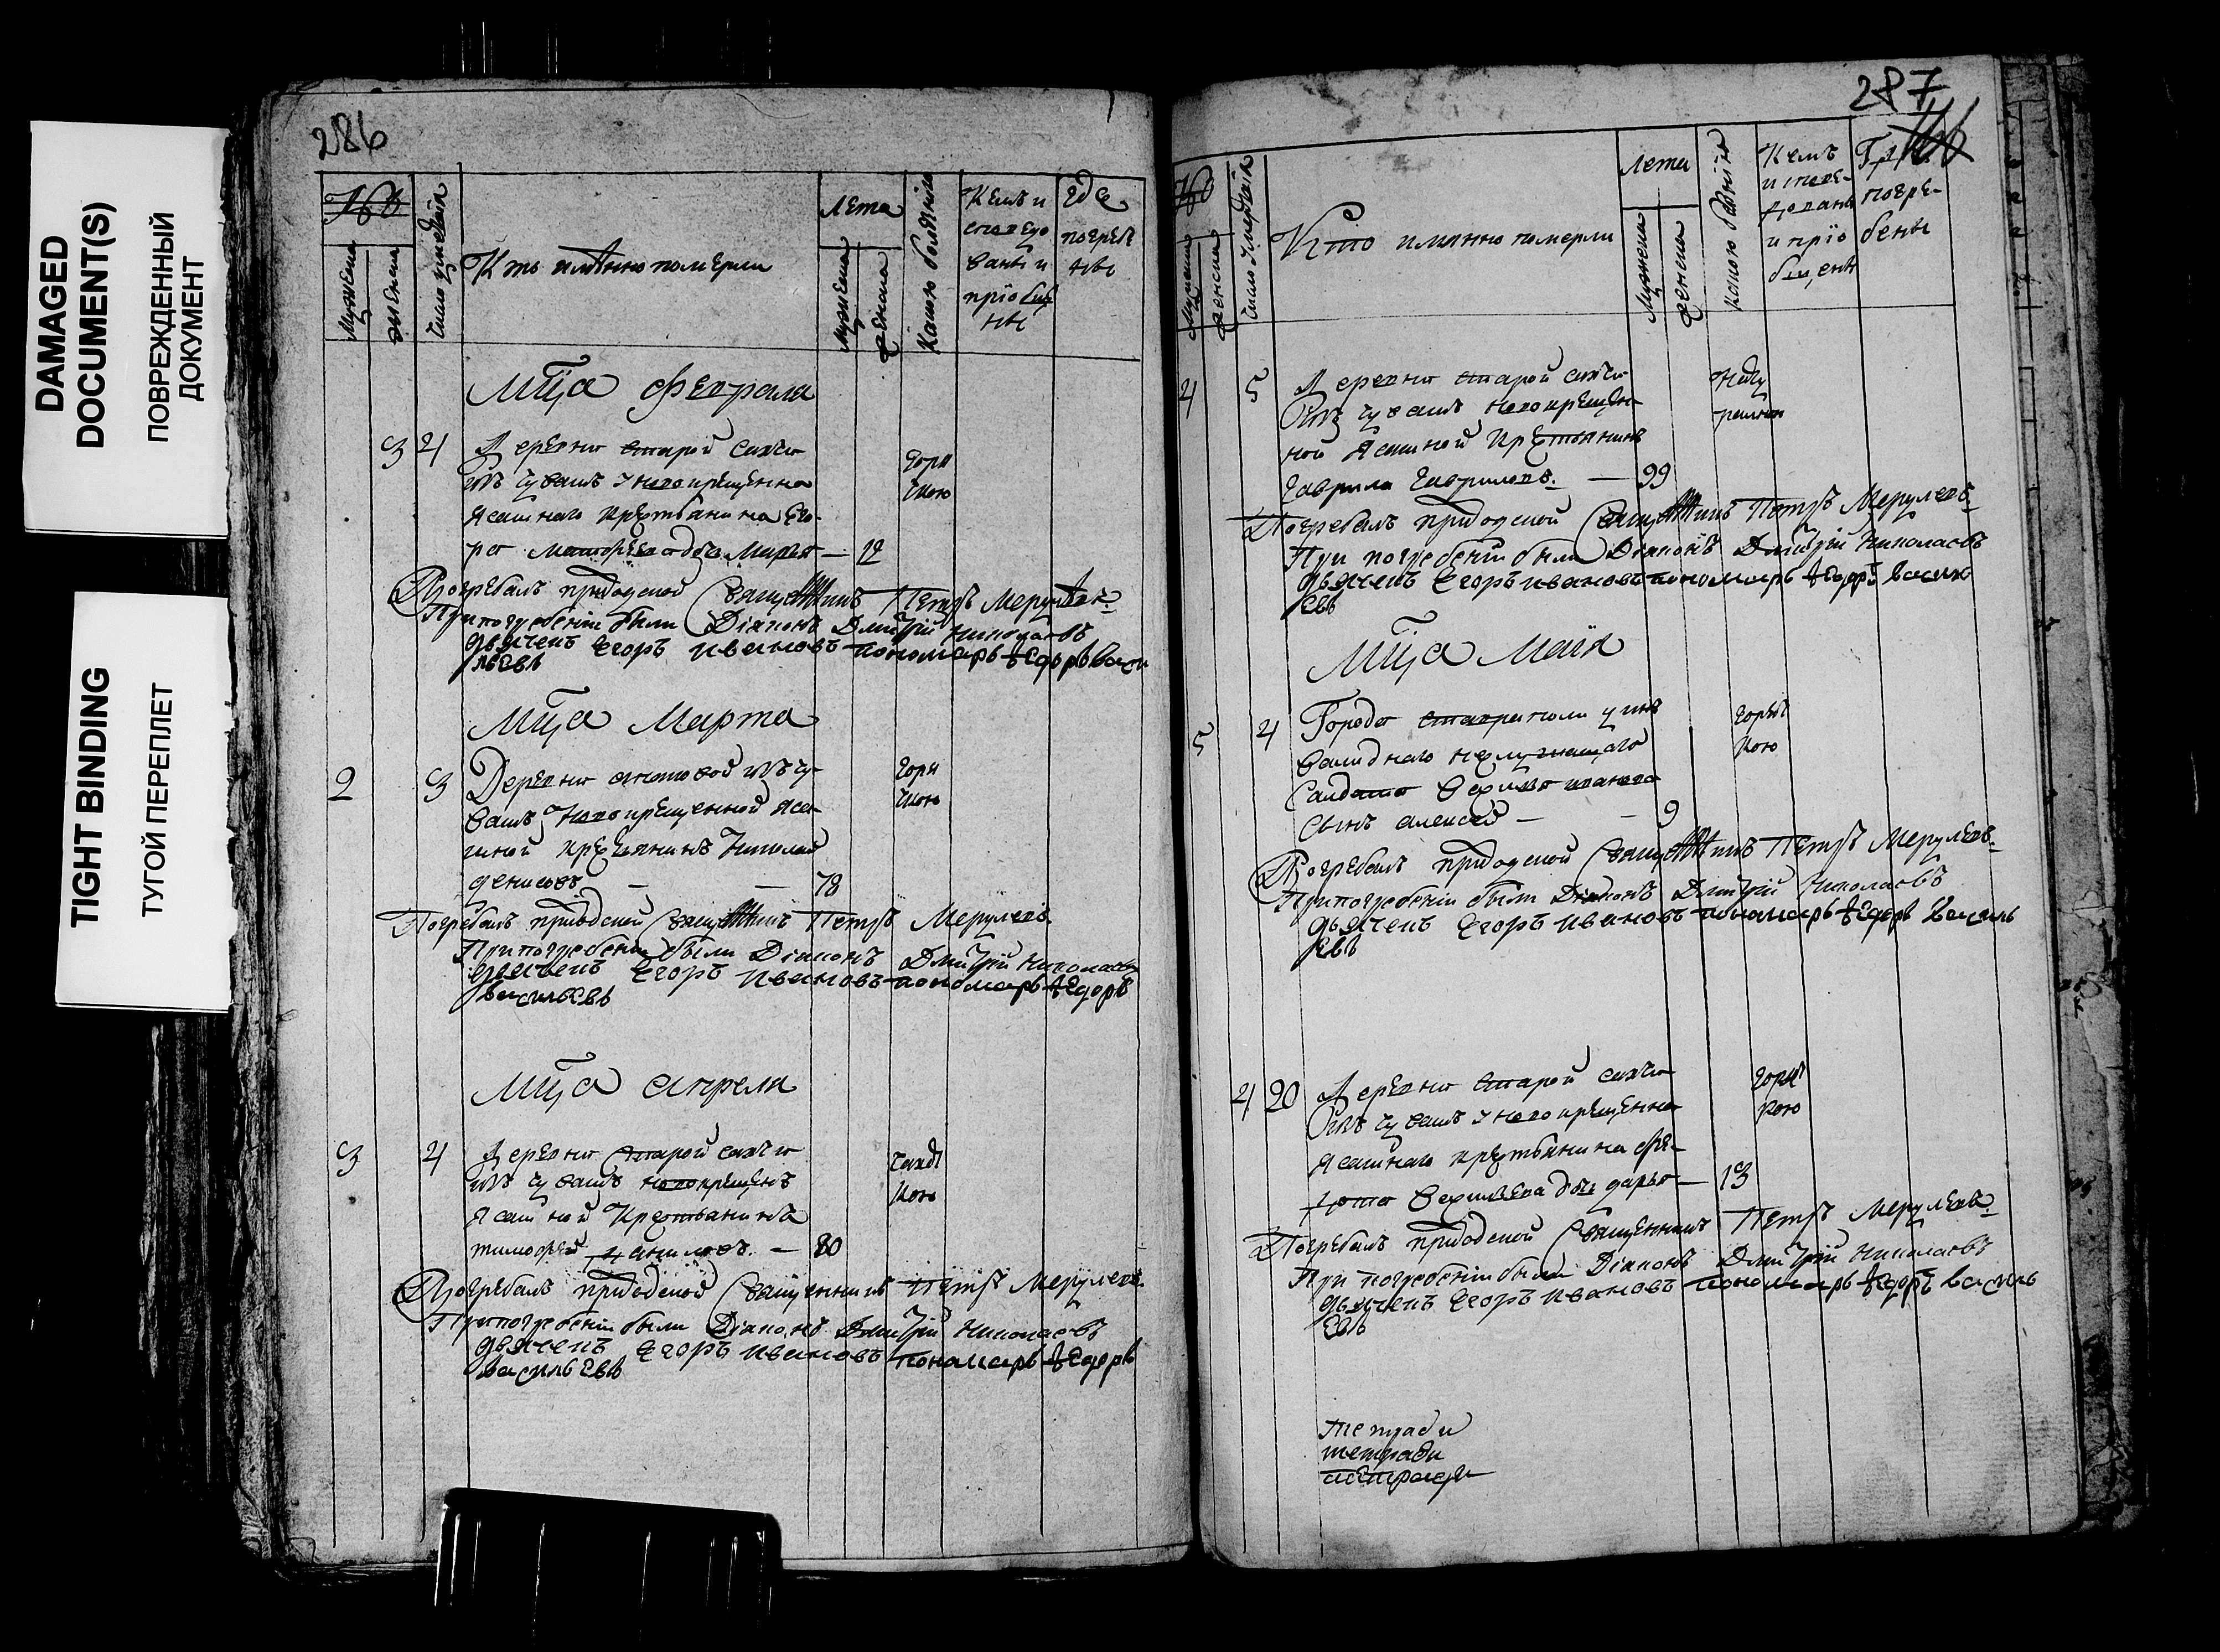 DAMAGED
DOCUMENT(S)
ПОВРЕЖДЕННЫЙ
ДОКУМЕНТ
TIGHT BINDING
ТУГОЙ ПЕРЕПЛЕТ
286
Мужеска
женска
Число умертвiя
Кто имянно померли
Лета
Мужеска
женска
Какою болезнiю
Кемъ и
споведо
ваны и
прiобще
ны
где
погребе
ны
Мца Февраля
3 4 Деревни Старой Сахчи
изъ чувашъ новокрещенна
Ясашнаго крестьянина Его-
ра дочь Марья — 12
Горя
чкою
Погребалъ приходской Священникъ Петръ Мерулевъ
При погребенiи были Дiаконъ Дмитрiй Николаевъ
дьячекъ Егоръ Ивановъ пономарь Ѳедоръ Васи
льевъ
Мца Марта
2 3 Деревни изъ чу
вашъ Новокрещенной Яса
шной крестьянинъ Николай
Денисовъ — — 78
Горя
чкою
Погребалъ приходской Священникъ Петръ Мерулевъ
При погребенiи были Дiаконъ Дмитрiй Николаевъ
дьячекъ Егоръ Ивановъ пономарь Ѳедоръ
Васильевъ
Мца Апреля
3 4 Деревни Старой Сахчи
изъ чувашъ новокрещенъ
Ясашной Крестьянинъ
Тимофей Даниловъ — 80
кою
Погребалъ приходской Священникъ Петръ Мерулевъ
При погребенiи были Дiаконъ Дмитрiй Николаевъ
дьячекъ Егоръ Ивановъ пономарь Ѳедоръ
Васильевъ
287
Мужеска
женска
Число умертвiя
Кто имянно померли
Лета
Мужеска
женска
Какою болезнiю
Кемъ
испове-
дованы
и прiо
бщены
Где
погре-
бены
4 5 Деревни Старой Сахчи
изъ чувашъ новокрещен-
ной Ясашной крестьянинъ
Гаврила Гавриловъ. — 99
Погребалъ приходской Священникъ Петръ Мерулевъ
При погребенiи были Дiаконъ Дмитрiй Николаевъ
дьячекъ Егоръ Ивановъ пономарь Ѳедоръ Василь
евъ
Мца Маiя
5 4 Города Ставрополи у ин
валиднаго
Салдата Иванова
сынъ Алексей — — 9
Горяч
кою
Погребалъ приходской Священникъ Петръ Мерулевъ
При погребенiи были Дiаконъ Дмитрiй Николаевъ
дьячекъ Егоръ Ивановъ пономарь Ѳедоръ Василь
евъ
4 20 Деревни Старой Сахчи
изъ чувашъ новокрещенна
Ясашнаго крестьянина Фе-
дота дочь Дарья — 13
Горяч
кою
Погребалъ приходской Священникъ Петръ Мерулевъ
При погребенiи были Дiаконъ Дмитрiй Николаевъ
дьячекъ Егоръ Ивановъ пономарь Ѳедоръ Василь
евъ
тетради
тетради
тетради